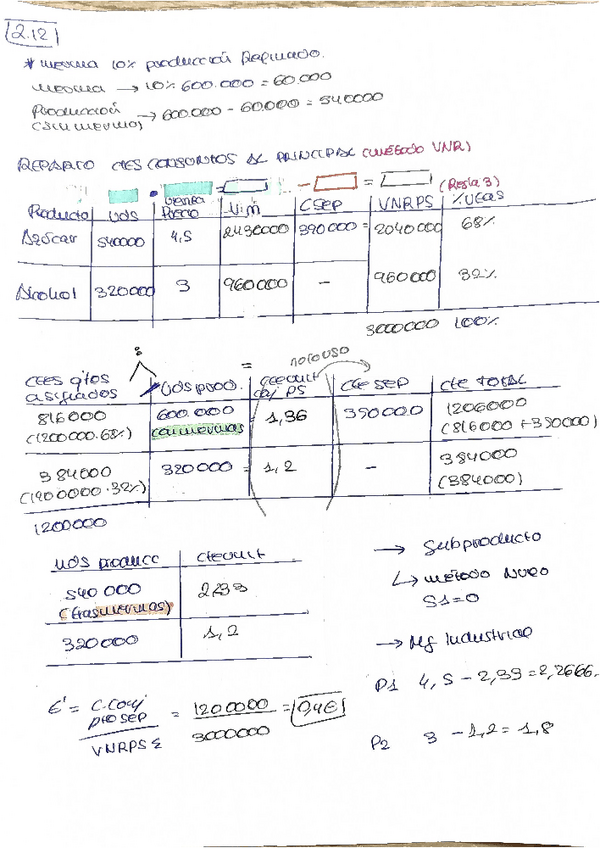 2.12
* merma 10% producción Refinado.
merma → 10% 600.000 = 60.000
Producción (sin mermas) → 600.000 - 60.000 = 540000
REPARTO CTES CONJUNTOS AL PRINCIPAL (MÉTODO VNR)
• - = (Resta 3)
Producto | UDS | Precio | V.m | CSEP | VNRPS | %
Azúcar | 540000 | 4,5 | 2430000 | 390000 = | 2040000 | 68%
Alcohol | 320000 | 3 | 960000 | - | 960000 | 32%
3000000 100%
: = no lo uso
asignados | UDS prod. | PS | Cte SEP | Cte TOTAL
816000 (1200000.68%) | 600.000 (con mermas) = | 1,36 | 390000 | 1206000 (816000 + 390000)
384000 (1200000.32%) | 320000 = | 1,2 | - | 384000 (384000)
1200000
UDS producc | Cteunit
540000 (tras mermas) | 2,233
320000 | 1,2
→ Subproducto
↳ método NULO
S1=0
→ Mg Industrial
P1 4,5 - 2,33 = 2,2666.
P2 3 - 1,2 = 1,8
€' = C.Conj pto SEP / VNRPS Σ = 1200000 / 3000000 = 0,4€